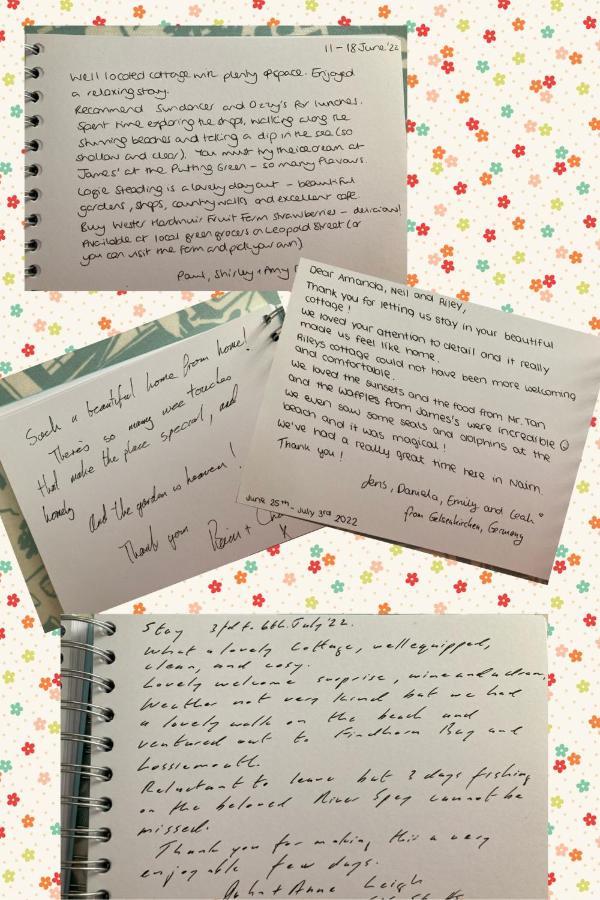 11 - 18 June '22
Well located cottage with plenty of space. Enjoyed
a relaxing stay.
Recommend Sundancer and Ozzy's for lunches.
Spent time exploring the shops, walking along the
stunning beaches and taking a dip in the sea (so
shallow and clear). You must try the ice cream at
James' at the Putting Green - so many flavours.
Logie Steading is a lovely day out - beautiful
gardens, shops, country walks and excellent cafe.
Buy Wester Hardmuir Fruit Farm Strawberries - delicious!
Available at local green grocers on Leopold Street (or
you can visit the Farm and pick your own)
Paul, Shirley + Amy
Dear Amanda, Neil and Riley,
Thank you for letting us stay in your beautiful
cottage!
We loved your attention to detail and it really
made us feel like home.
Rileys cottage could not have been more welcoming
and comfortable.
We loved the sunsets and the food from Mr. Tan
and the waffles from James's were incredible ☺
We even saw some seals and dolphins at the
beach and it was magical!
We've had a really great time here in Nairn.
Thank you!
Jens, Daniela, Emily and Leah
from Gelsenkirchen, Germany
June 25th - July 3rd 2022
Such a beautiful home from home!
There's so many wee touches
that make the place special, and
homely
and the garden is heaven!
Thank you
x
Stay 3rd to 6th July '22.
What a lovely Cottage, well equipped,
clean, and cosy.
Lovely welcome surprise, wine and a dram,
Weather not very kind but we had
a lovely walk on the beach and
ventured out to Findhorn Bay and
Lossiemouth.
Reluctant to leave but 3 days fishing
on the beloved River Spey cannot be
missed.
Thank you for making this a very
enjoyable few days.
John + Anne Leigh